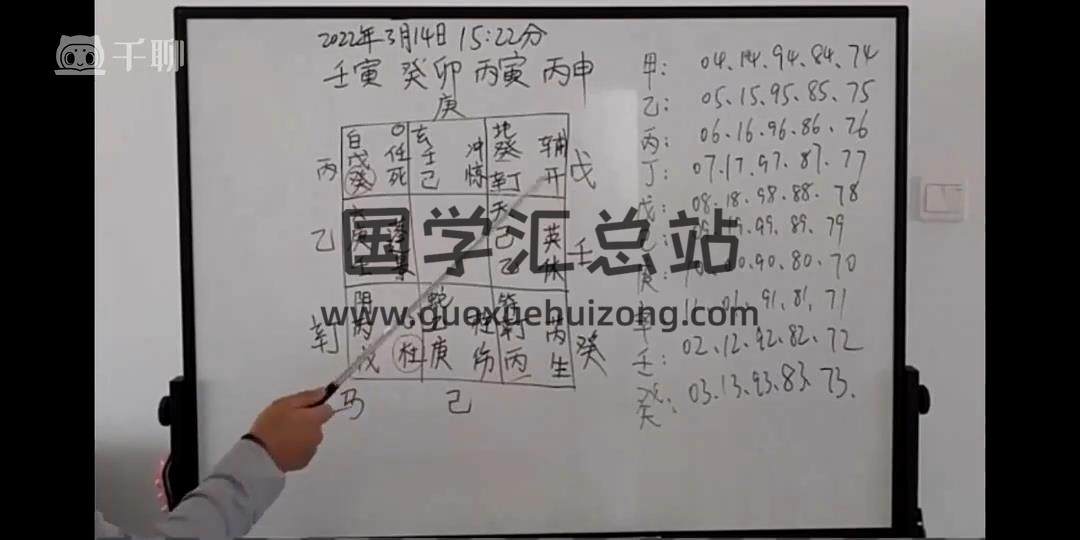 千聊
2022年3月14日 15:22分
壬寅 癸卯 丙寅 丙申
庚
丙
白 戊 癸
○ 任 死
玄 壬 己
冲 惊
地 癸 辛丁
辅 开
戊
乙
天 己 乙
英 休
壬
辛
阴 丙 戊
杜
蛇 庚
柱 伤
符 丙
芮 生
癸
马
己
甲: 04.14.94.84.74
乙: 05.15.95.85.75
丙: 06.16.96.86.76
丁: 07.17.97.87.77
戊: 08.18.98.88.78
99.89.79
庚: 90.80.70
91.81.71
壬: 02.12.92.82.72
癸: 03.13.93.83.73.
国学汇总站
www.guoxuehuizong.com